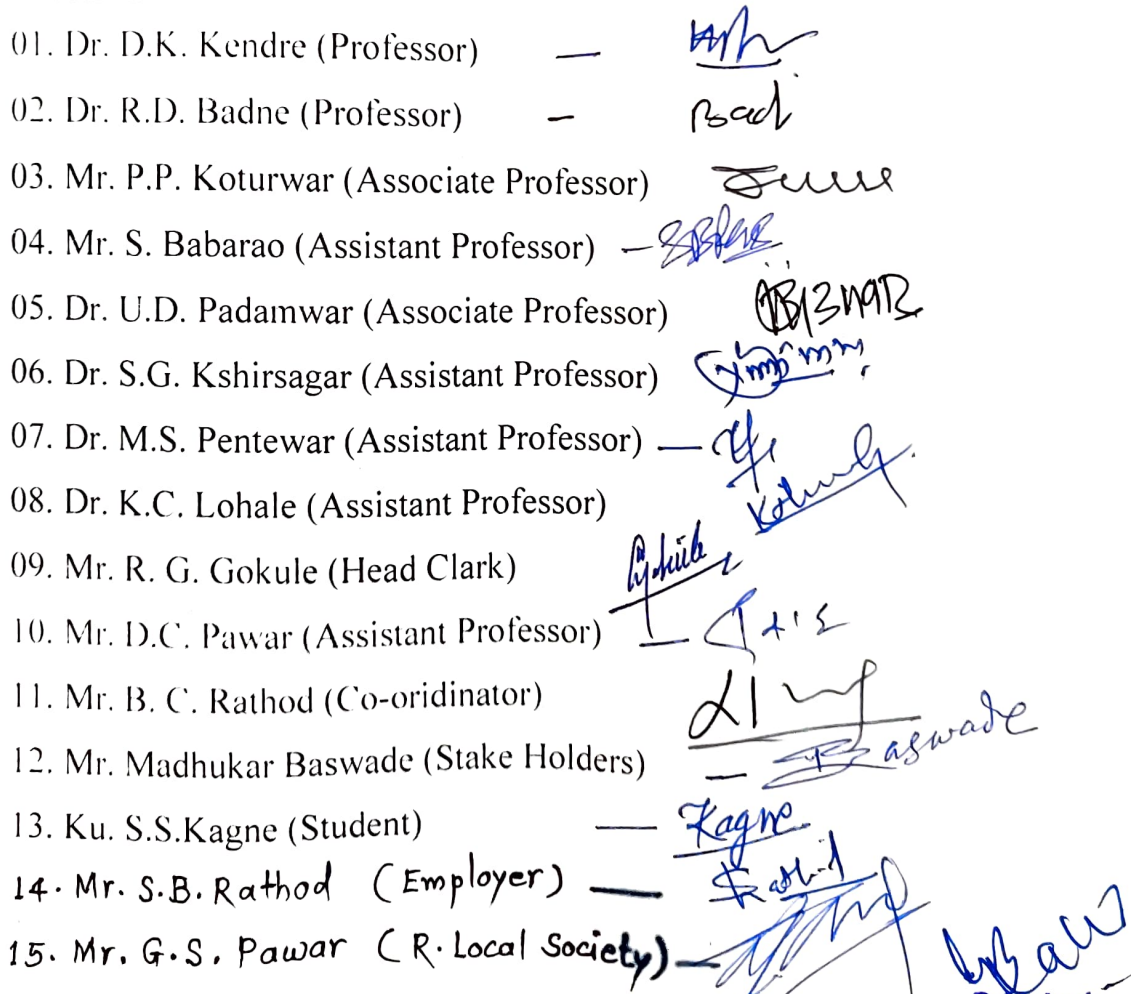 01. Dr. D.K. Kendre (Professor) —
02. Dr. R.D. Badne (Professor) – Bad
03. Mr. P.P. Koturwar (Associate Professor)
04. Mr. S. Babarao (Assistant Professor) –
05. Dr. U.D. Padamwar (Associate Professor)
06. Dr. S.G. Kshirsagar (Assistant Professor)
07. Dr. M.S. Pentewar (Assistant Professor) —
08. Dr. K.C. Lohale (Assistant Professor)
09. Mr. R. G. Gokule (Head Clark) Gokule
10. Mr. D.C. Pawar (Assistant Professor) —
11. Mr. B. C. Rathod (Co-oridinator)
12. Mr. Madhukar Baswade (Stake Holders) – Baswade
13. Ku. S.S.Kagne (Student) — Kagne
14. Mr. S.B. Rathod (Employer) — Rathod
15. Mr. G.S. Pawar (R. Local Society) —